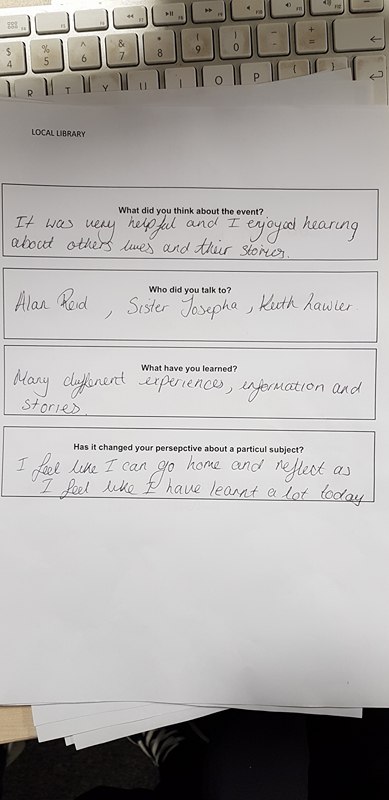 $ % ^ & * ( ) _ +
4 5 6 7 8 9 0 - =
R T Y U I O P {
LOCAL LIBRARY
What did you think about the event?
It was very helpful and I enjoyed hearing
about others lives and their stories.
Who did you talk to?
Alan Reid , Sister Josepha , Keith Lawler.
What have you learned?
Many different experiences, information and
stories.
Has it changed your persepctive about a particul subject?
I feel like I can go home and reflect as
I feel like I have learnt a lot today